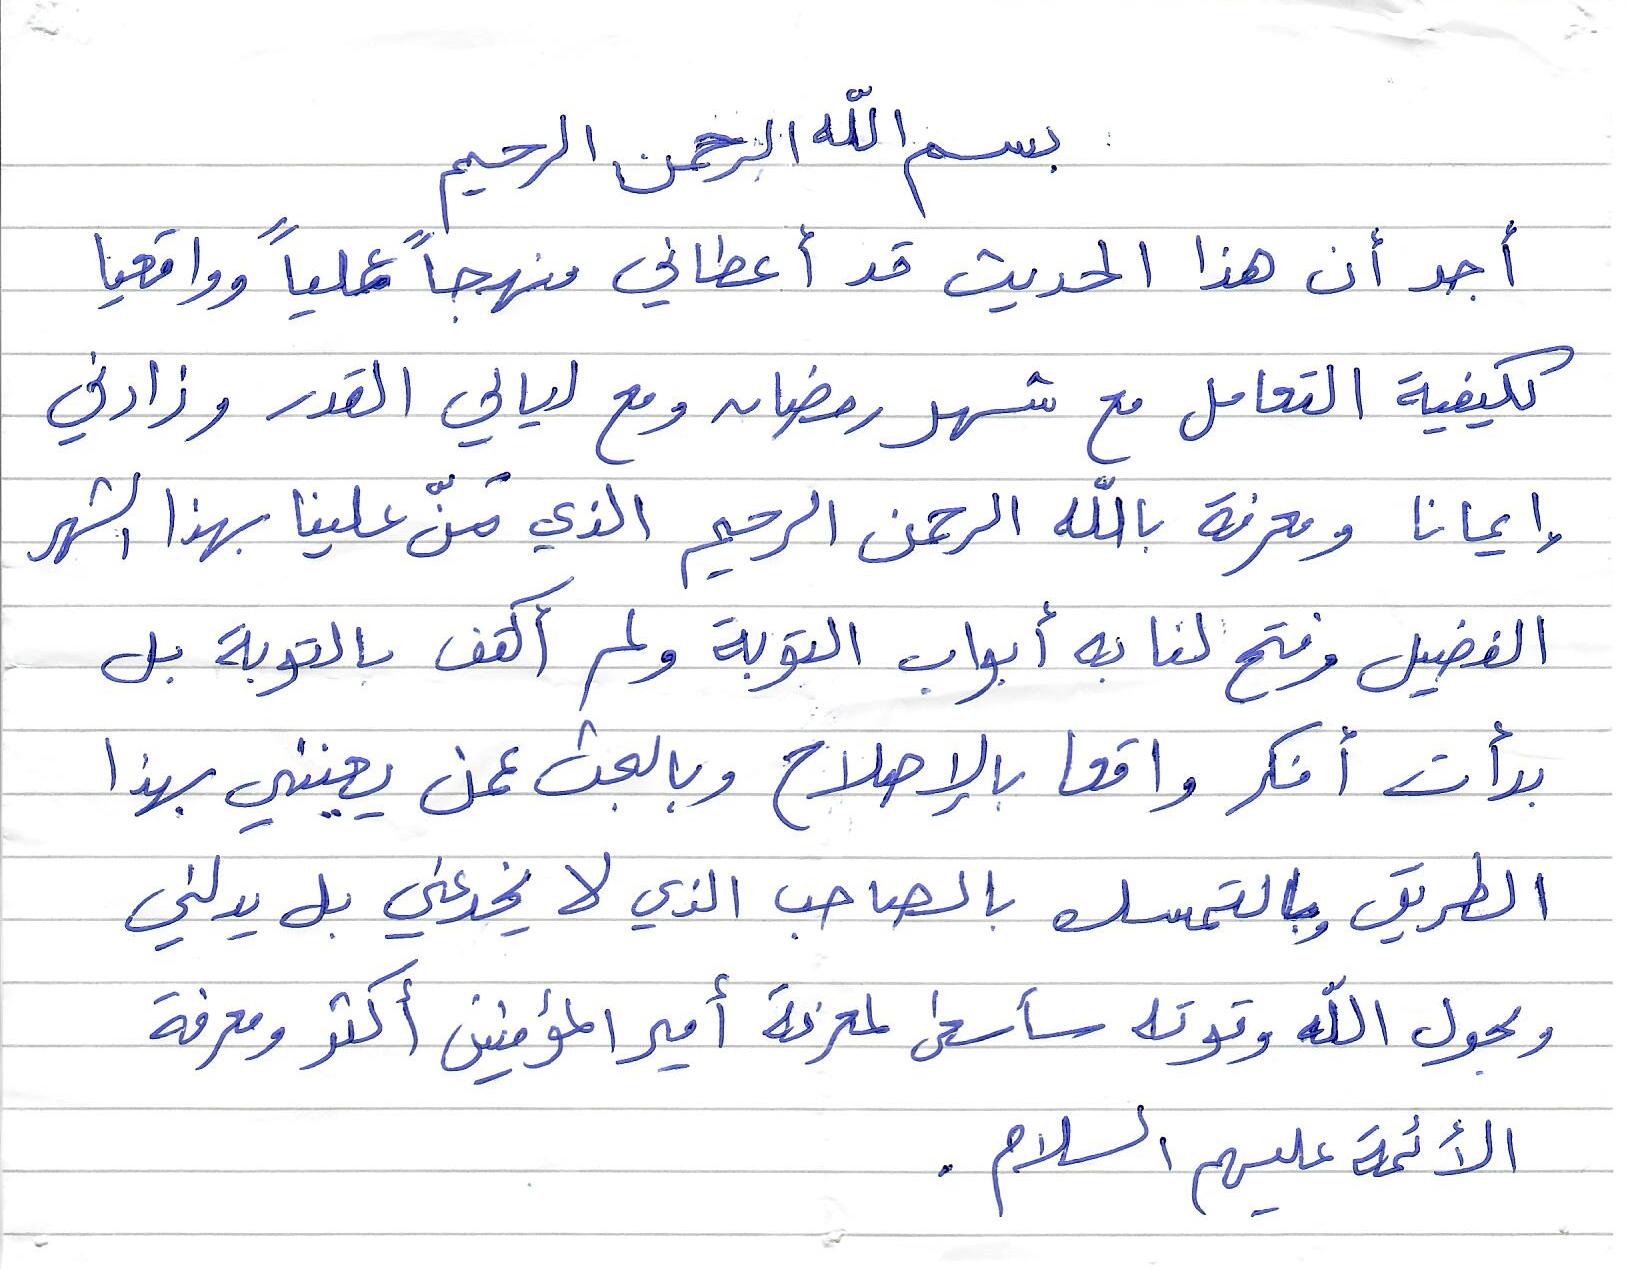 بسم الله الرحمن الرحيم
أجد أن هذا الحديث قد أعطاني منهجاً عملياً وواقعيا
لكيفية التعامل مع شهر رمضان ومع ليالي القدر وزادني
إيمانا ومعرفة بالله الرحمن الرحيم الذي مَنّ علينا بهذا الشهر
الفضيل وفتح لنا به أبواب التوبة ولم أكتف بالتوبة بل
بدأت أفكر واقعا بالإصلاح وبالبحث عمن يعينني بهذا
الطريق وبالتمسك بالصاحب الذي لا يخدعني بل يدلني
وبحول الله وقوته سأسعى لمعرفة أمير المؤمنين أكثر ومعرفة
الأئمة عليهم السلام .